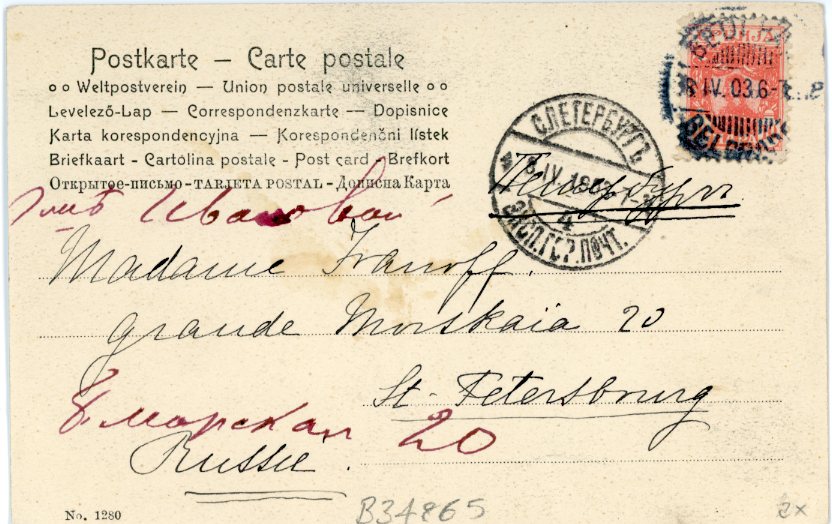 Postkarte – Carte postale
Weltpostverein – Union postale universelle
Levelező-Lap — Correspondenzkarte — Dopisnice
Karta korespondencyjna — Korespondenční lístek
Briefkaart - Cartolina postale - Post card - Brefkort
Открытое-письмо - TARJETA POSTAL - Дописна Карта
С.ПЕТЕРБУРГЪ
4
ЭКСП.ГОР.ПОЧТ.
IV. 03.6-
Петербург
Ивановой
Madame Ivanoff.
grande Morskaïa 20
St. Petersbourg
Б. морская 20
Russie.
No. 1280
B34865
2x